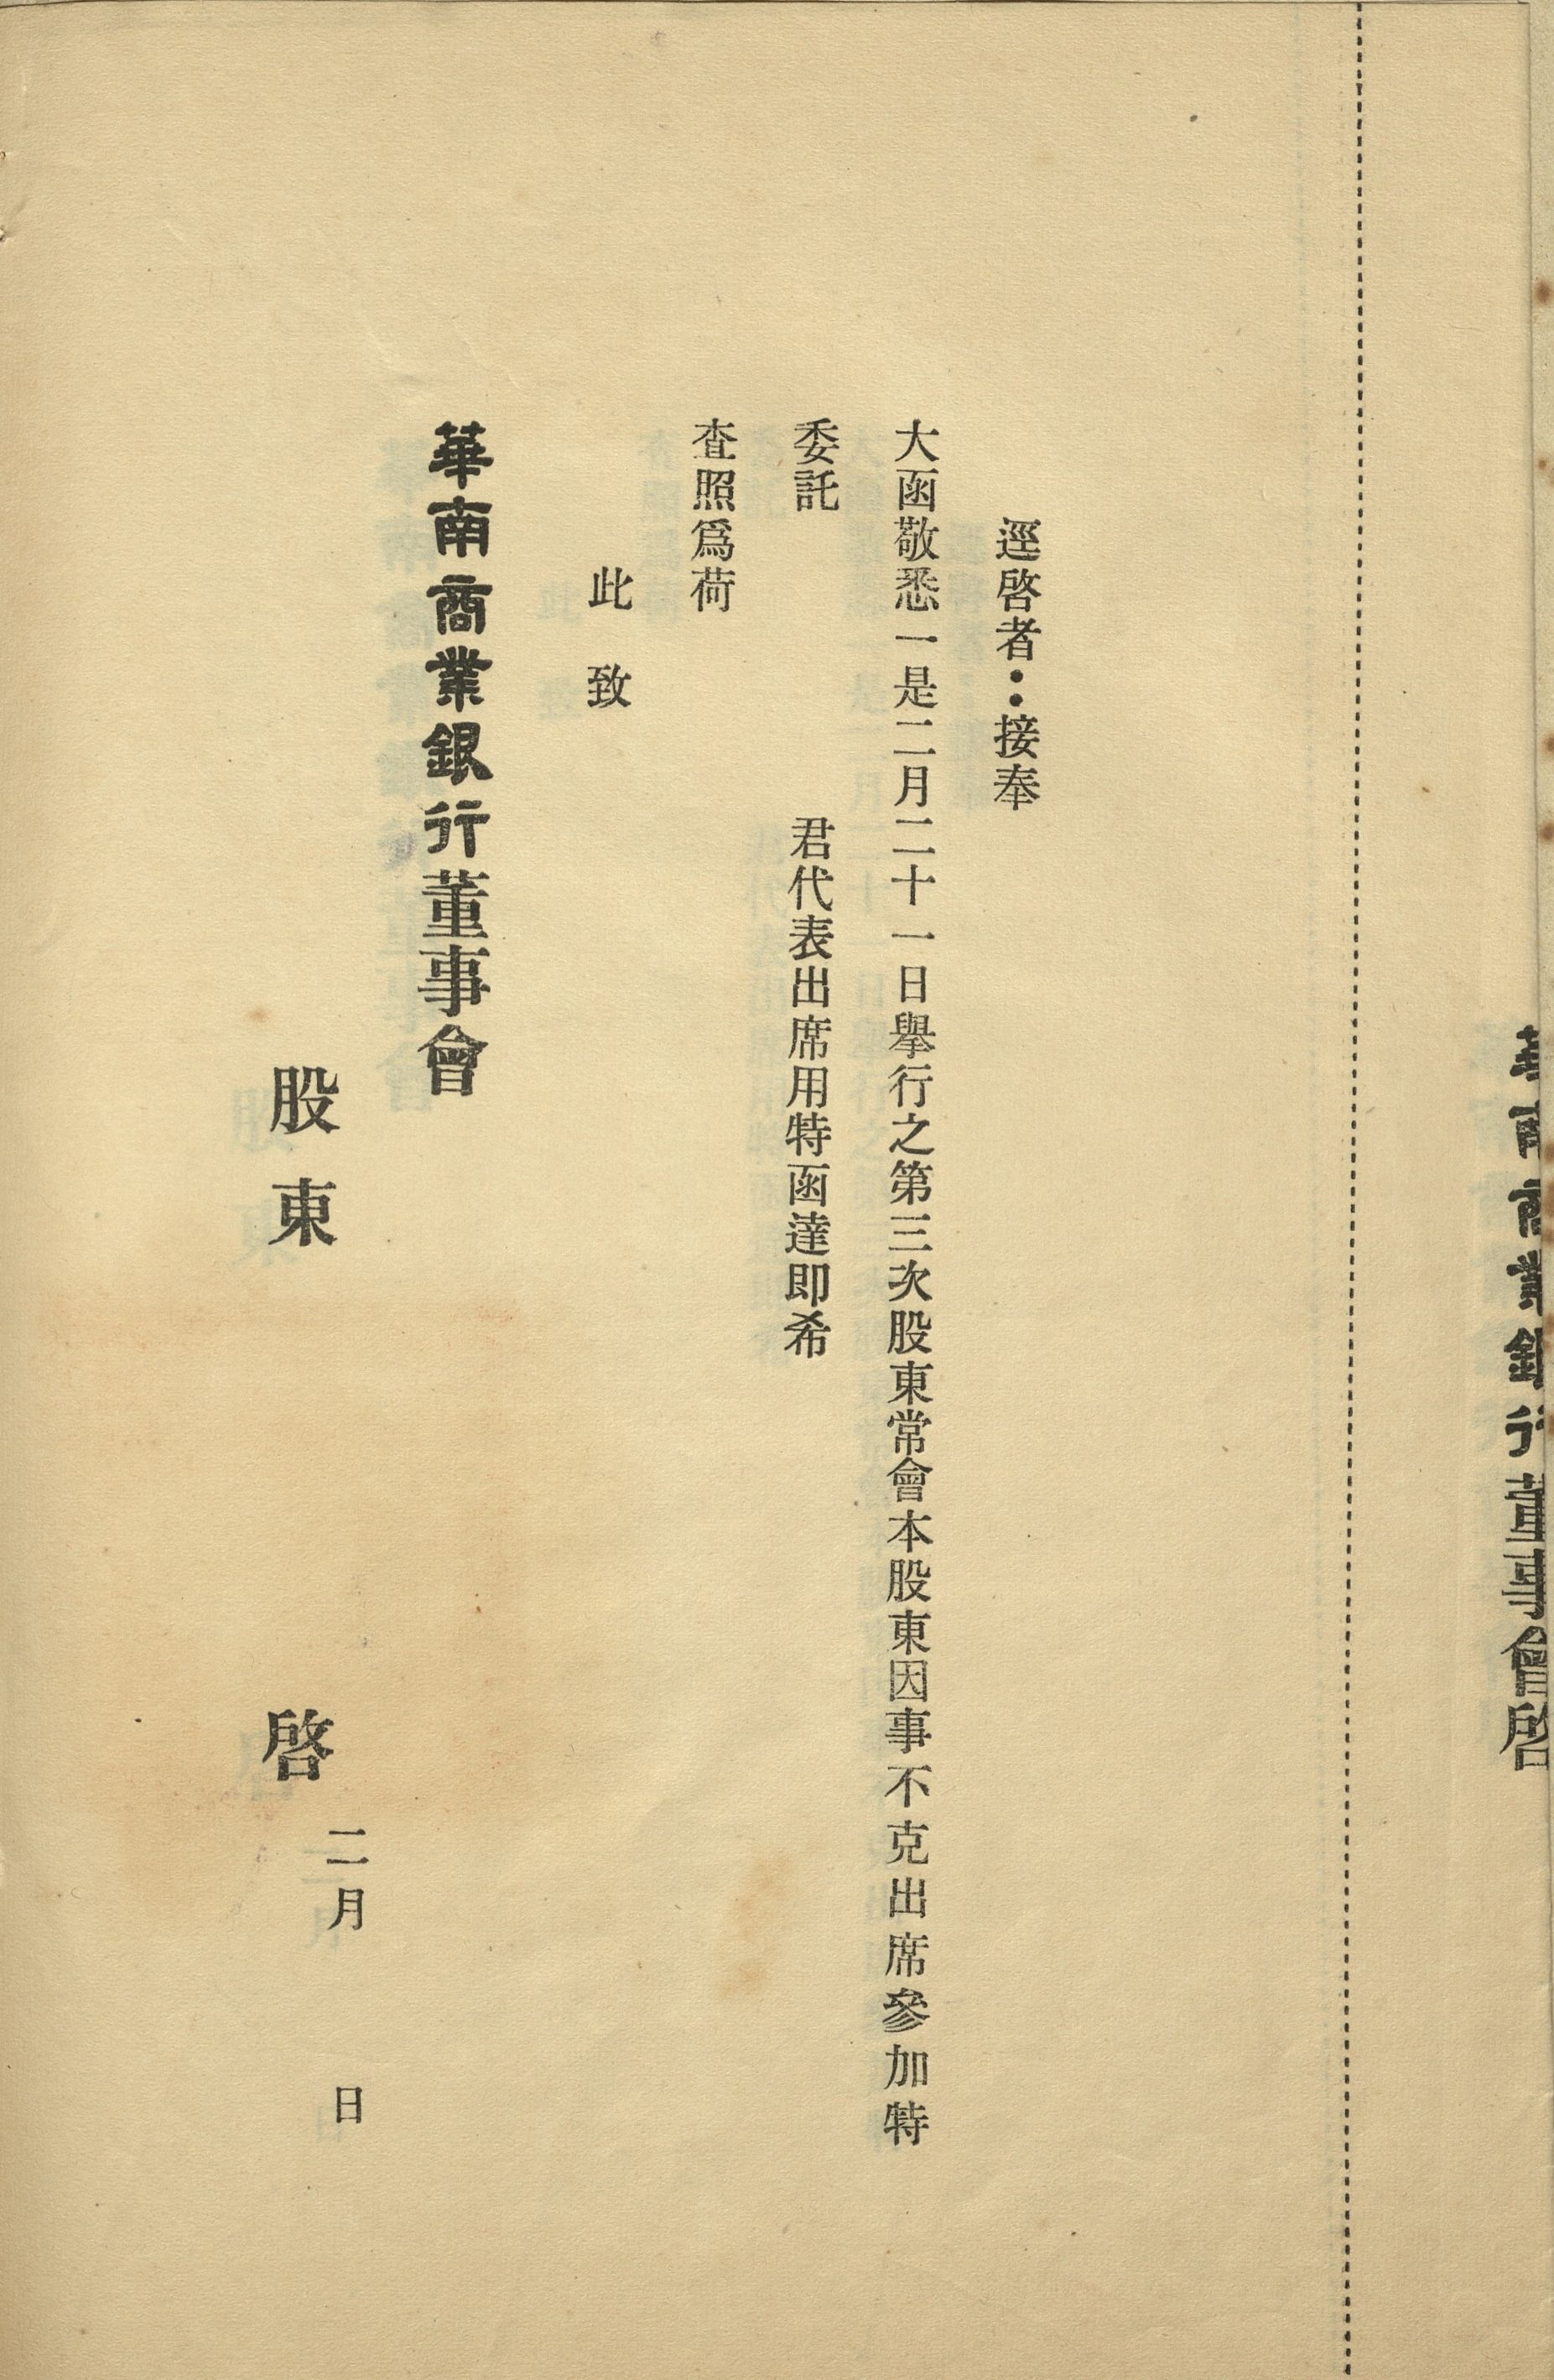 華南商業銀行董事會啓
逕啓者：接奉
大函敬悉一是二月二十一日舉行之第三次股東常會本股東因事不克出席參加特
委託　　　君代表出席用特函達即希
查照爲荷
此致
華南商業銀行董事會
股東　　　啓
二月　　日